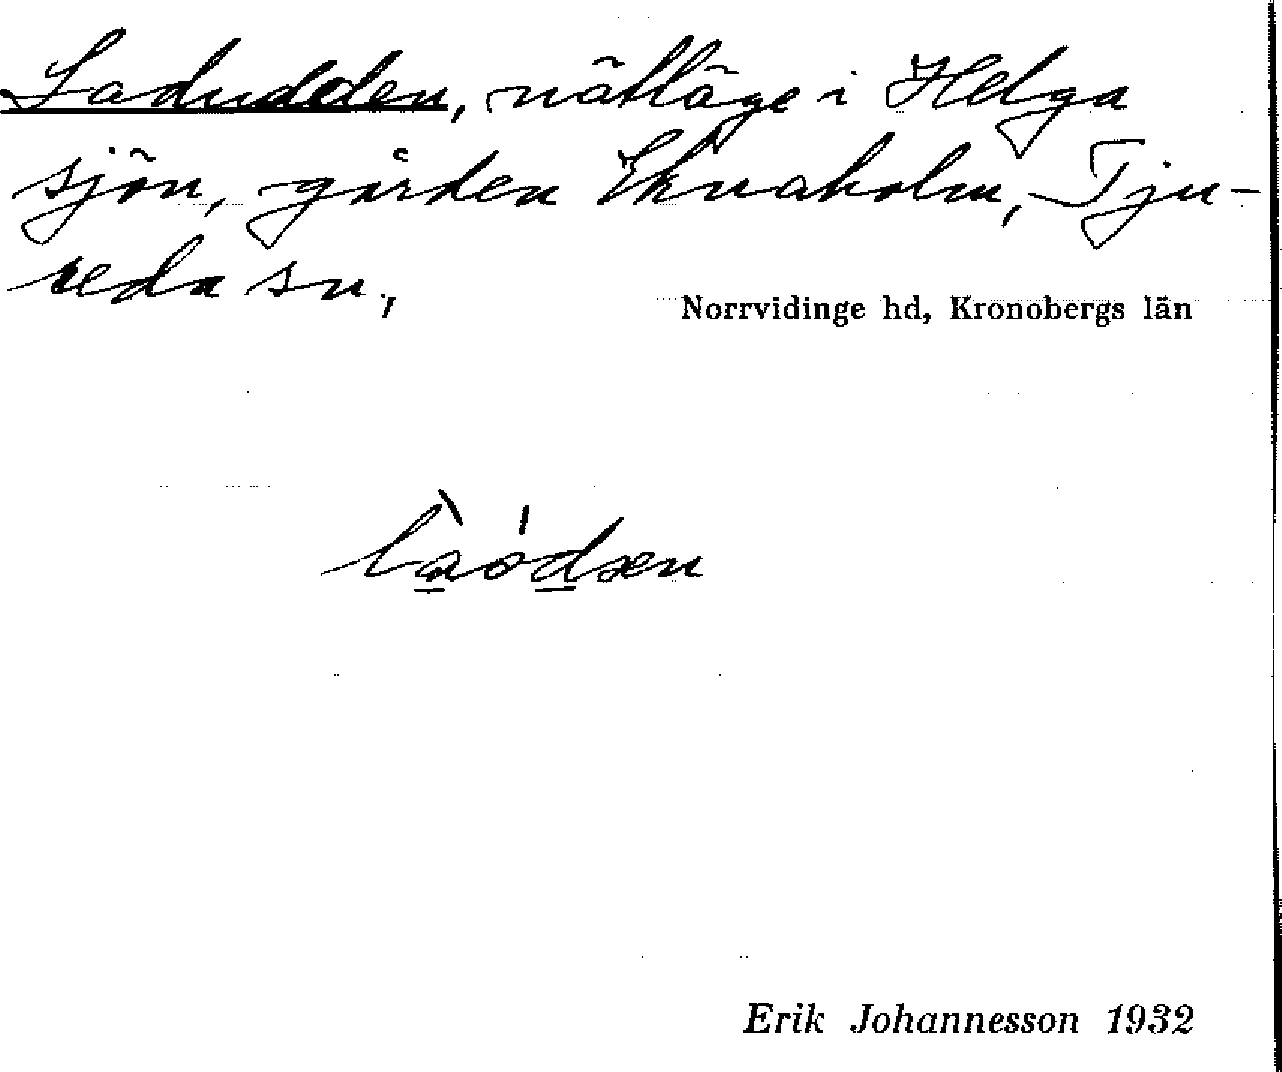 Ladudden, nätläge i Helga
sjön, gården Eknaholm, Tju-
reda sn,
Norrvidinge hd, Kronobergs län
làódsen
Erik Johannesson 1932